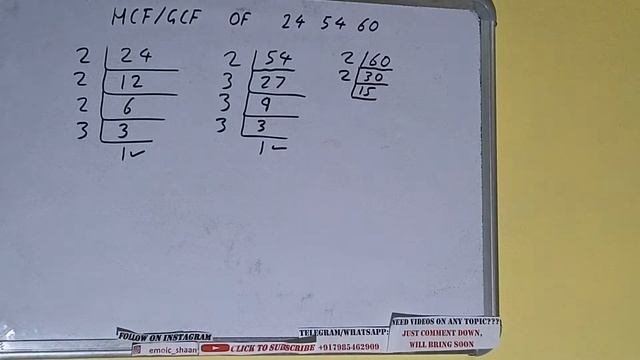 HCF/GCF OF 24 54 60
2 24
2 12
2 6
3 3
1✓
2 54
3 27
3 9
3 3
1✓
2 60
2 30
15
FOLLOW ON INSTAGRAM
emoic_shaan
CLICK TO SUBSCRIBE
TELEGRAM/WHATSAPP:
+917985462909
NEED VIDEOS ON ANY TOPIC???
JUST COMMENT DOWN,
WILL BRING SOON